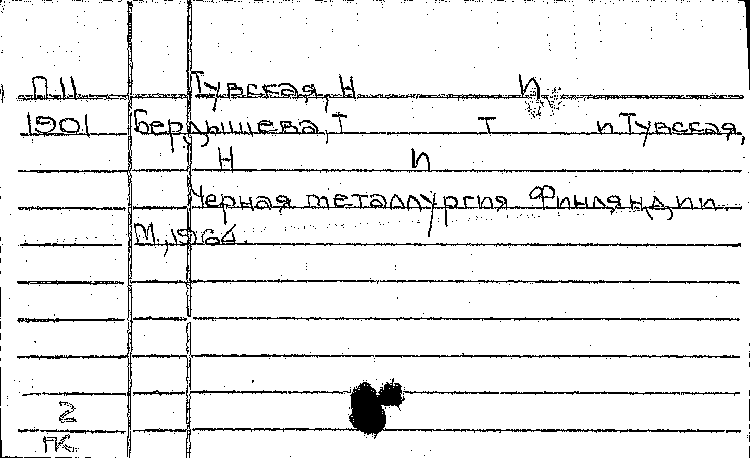 П.11 Тувская, Н П
1901 Бердышева, Т Т и Тувская,
Н П
Черная металлургия Финляндии.
М., 1964.
2
ГК